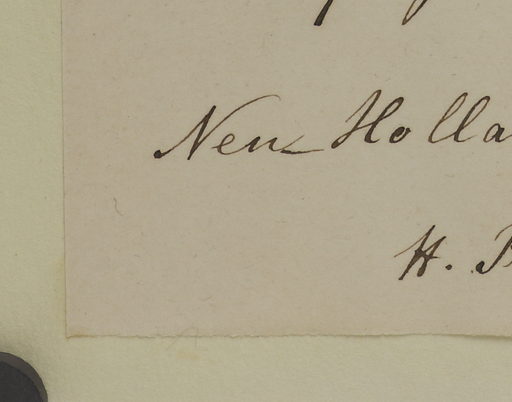 Neu Holla
H.